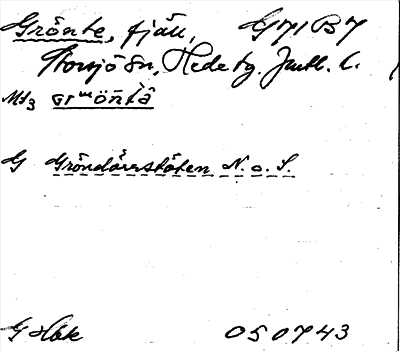 Grönte, fjäll, G 71 B 7
Storsjö sn, Hede tg. Jmtl. l.
Mt3 grᵚö̀ntâ
G Gröndörrstöten N. o. S.
G Hbk 050743